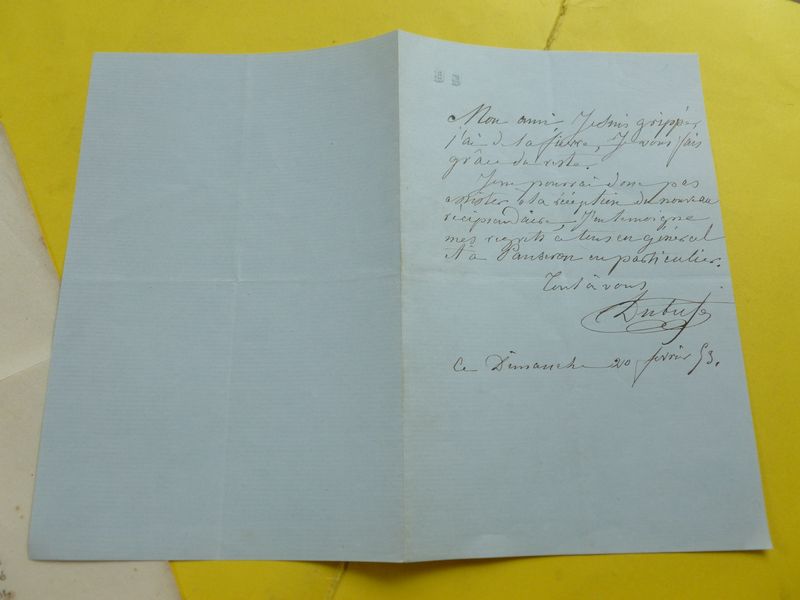 Mon ami Je suis grippé,
j'ai de la fièvre, Je vous fais
grâce du reste.
Je ne pourrai donc pas
assister à la réception du nouveau
récipiendaire. J'en témoigne
mes regrets à tous en général
et à Panseron en particulier.
Tout à vous
Dubufe
Ce Dimanche 20 février 53.